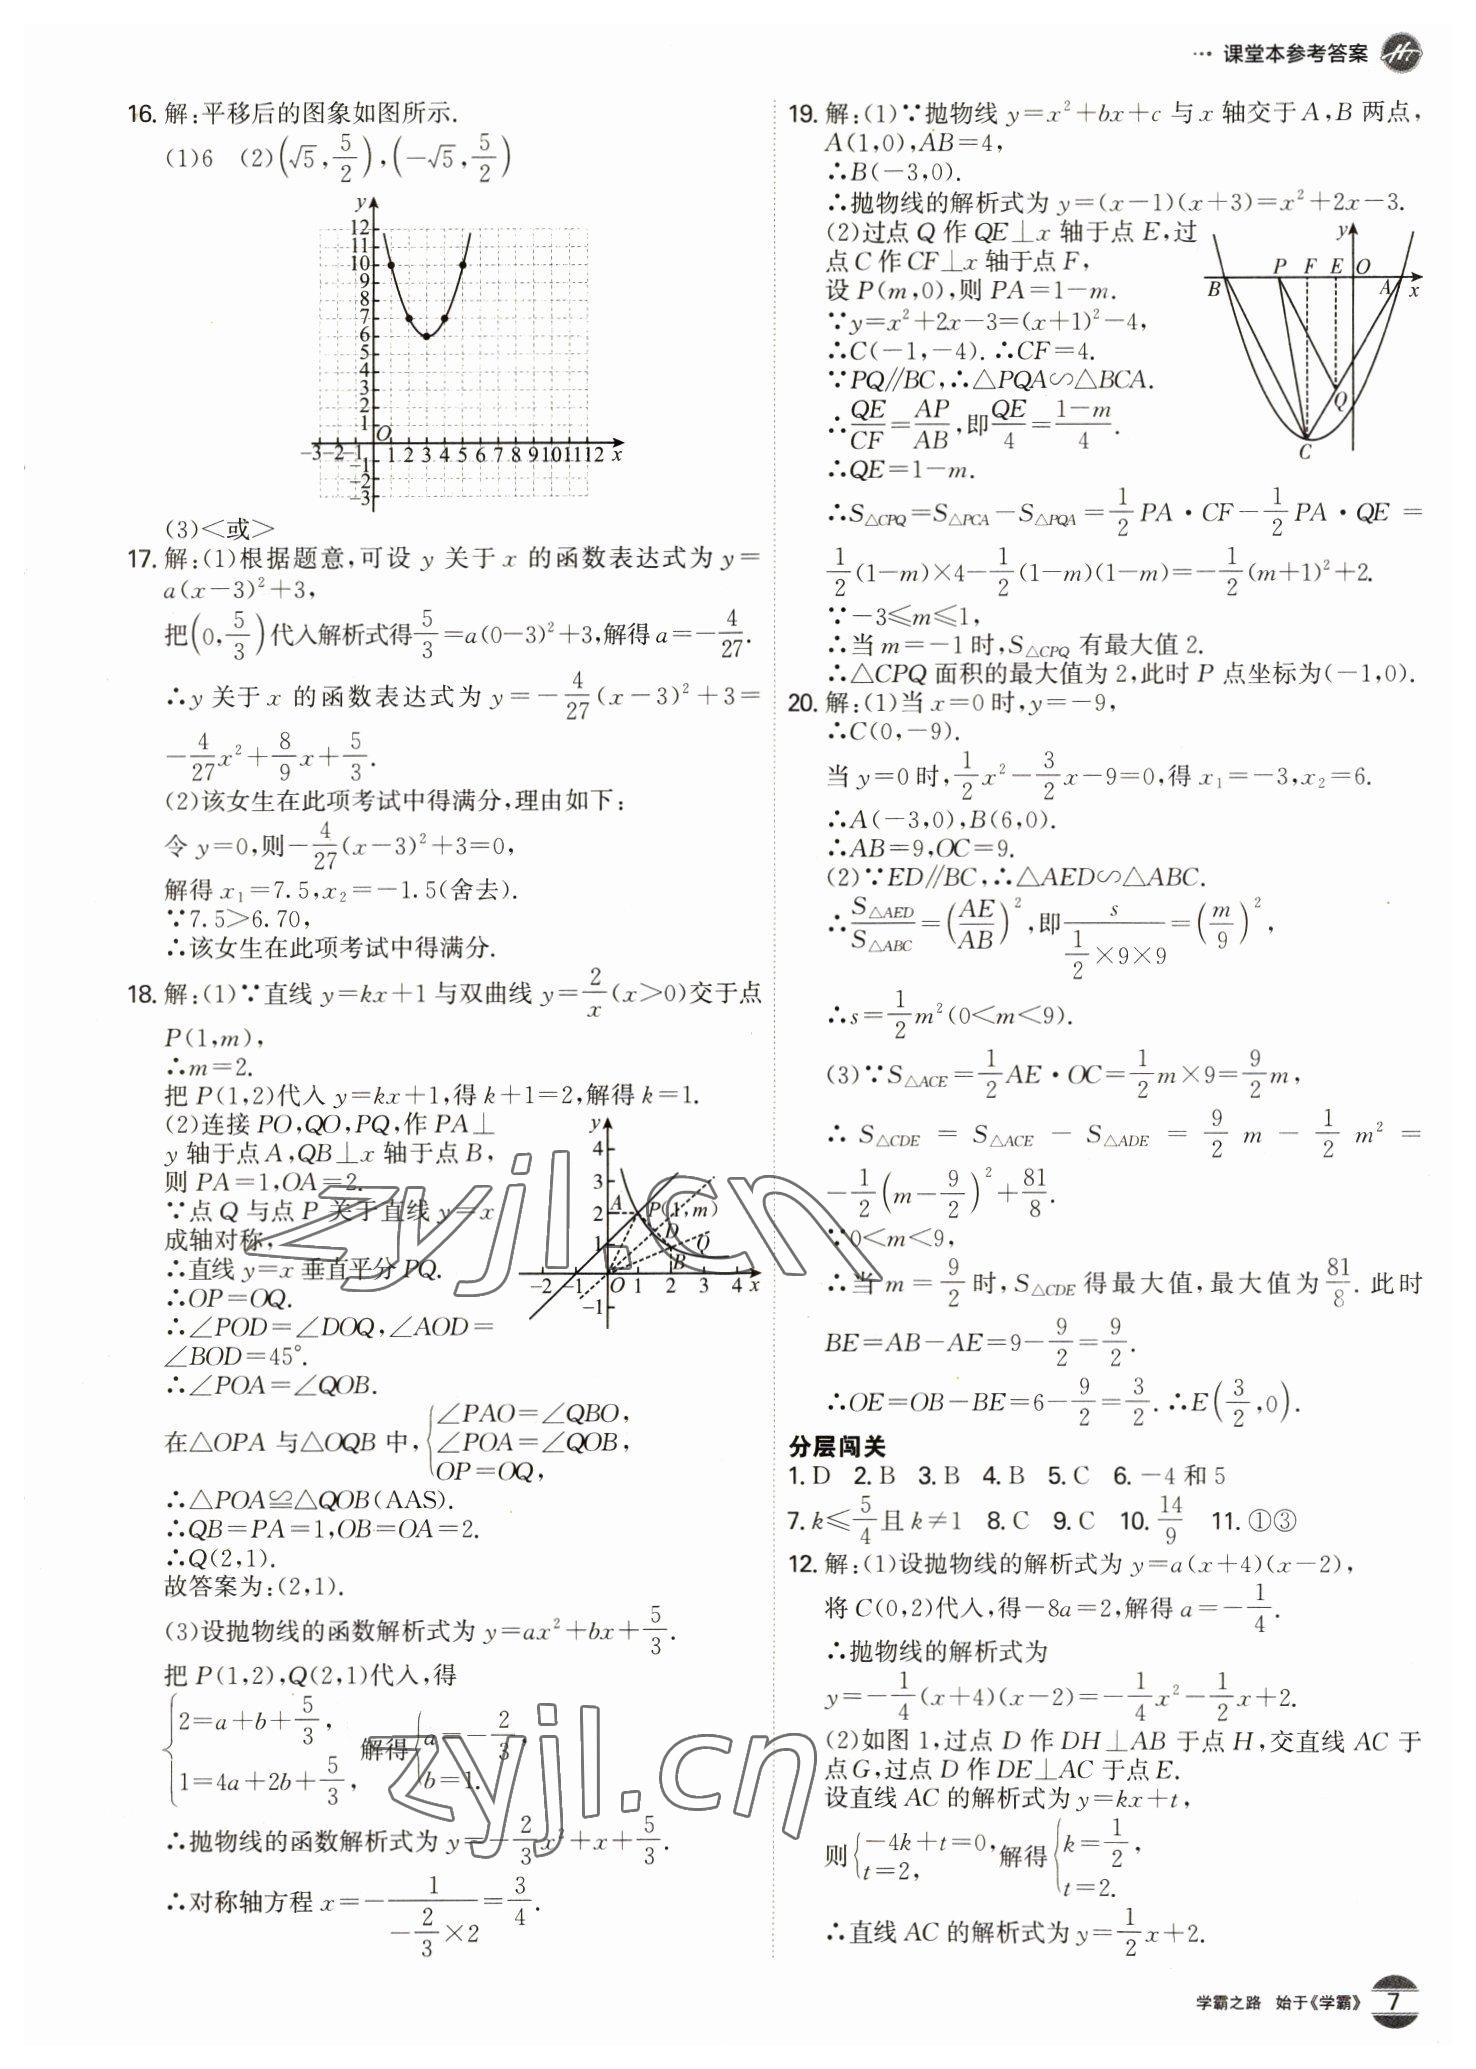 … 课堂本参考答案
16. 解:平移后的图象如图所示.
(1)6 (2)(√5,5/2),(-√5,5/2)
y
12
11
10
9
8
7
6
5
4
3
2
1
O
-3-2-1 1 2 3 4 5 6 7 8 9 10 11 12 x
-1
-2
-3
(3)<或>
17. 解:(1)根据题意,可设 y 关于 x 的函数表达式为 y=
a(x-3)²+3,
把(0,5/3)代入解析式得5/3=a(0-3)²+3,解得 a=-4/27.
∴y 关于 x 的函数表达式为 y=-4/27(x-3)²+3=
-4/27x²+8/9x+5/3.
(2)该女生在此项考试中得满分,理由如下:
令 y=0,则-4/27(x-3)²+3=0,
解得 x₁=7.5,x₂=-1.5(舍去).
∵7.5>6.70,
∴该女生在此项考试中得满分.
18. 解:(1)∵直线 y=kx+1 与双曲线 y=2/x(x>0)交于点
P(1,m),
∴m=2.
把 P(1,2)代入 y=kx+1,得 k+1=2,解得 k=1.
(2)连接 PO,QO,PQ,作 PA⊥
y 轴于点 A,QB⊥x 轴于点 B,
则 PA=1,OA=2.
∵点 Q 与点 P 关于直线 y=x
成轴对称,
∴直线 y=x 垂直平分 PQ.
∴OP=OQ.
∴∠POD=∠DOQ,∠AOD=
∠BOD=45°.
∴∠POA=∠QOB.
y
4
3
A 2 P(1,m)
D
1 Q
B
-2 -1 O 1 2 3 4 x
-1
在△OPA 与△OQB 中,{∠PAO=∠QBO,
∠POA=∠QOB,
OP=OQ,
∴△POA≌△QOB(AAS).
∴QB=PA=1,OB=OA=2.
∴Q(2,1).
故答案为:(2,1).
(3)设抛物线的函数解析式为 y=ax²+bx+5/3.
把 P(1,2),Q(2,1)代入,得
{2=a+b+5/3,
1=4a+2b+5/3, 解得{a=-2/3,
b=1.
∴抛物线的函数解析式为 y=-2/3x²+x+5/3.
∴对称轴方程 x=-1/(-2/3×2)=3/4.
19. 解:(1)∵抛物线 y=x²+bx+c 与 x 轴交于 A,B 两点,
A(1,0),AB=4,
∴B(-3,0).
∴抛物线的解析式为 y=(x-1)(x+3)=x²+2x-3.
(2)过点 Q 作 QE⊥x 轴于点 E,过
点 C 作 CF⊥x 轴于点 F,
设 P(m,0),则 PA=1-m.
∵y=x²+2x-3=(x+1)²-4,
∴C(-1,-4). ∴CF=4.
∵PQ∥BC,∴△PQA∽△BCA.
∴QE/CF=AP/AB,即QE/4=(1-m)/4.
∴QE=1-m.
y
P F E O
B A x
Q
C
∴S△CPQ=S△PCA-S△PQA=1/2PA·CF-1/2PA·QE=
1/2(1-m)×4-1/2(1-m)(1-m)=-1/2(m+1)²+2.
∵-3≤m≤1,
∴当 m=-1 时,S△CPQ 有最大值 2.
∴△CPQ 面积的最大值为 2,此时 P 点坐标为(-1,0).
20. 解:(1)当 x=0 时,y=-9,
∴C(0,-9).
当 y=0 时,1/2x²-3/2x-9=0,得 x₁=-3,x₂=6.
∴A(-3,0),B(6,0).
∴AB=9,OC=9.
(2)∵ED∥BC,∴△AED∽△ABC.
∴S△AED/S△ABC=(AE/AB)²,即s/(1/2×9×9)=(m/9)²,
∴s=1/2m²(0<m<9).
(3)∵S△ACE=1/2AE·OC=1/2m×9=9/2m,
∴S△CDE=S△ACE-S△ADE=9/2m-1/2m²=
-1/2(m-9/2)²+81/8.
∵0<m<9,
∴当 m=9/2时,S△CDE得最大值,最大值为81/8. 此时
BE=AB-AE=9-9/2=9/2.
∴OE=OB-BE=6-9/2=3/2. ∴E(3/2,0).
分层闯关
1. D 2. B 3. B 4. B 5. C 6. -4 和 5
7. k≤5/4且 k≠1 8. C 9. C 10. 14/9 11. ①③
12. 解:(1)设抛物线的解析式为 y=a(x+4)(x-2),
将 C(0,2)代入,得-8a=2,解得 a=-1/4.
∴抛物线的解析式为
y=-1/4(x+4)(x-2)=-1/4x²-1/2x+2.
(2)如图 1,过点 D 作 DH⊥AB 于点 H,交直线 AC 于
点 G,过点 D 作 DE⊥AC 于点 E.
设直线 AC 的解析式为 y=kx+t,
则{-4k+t=0,
t=2, 解得{k=1/2,
t=2.
∴直线 AC 的解析式为 y=1/2x+2.
学霸之路 始于《学霸》 7
zyjl.cn
zyjl.cn